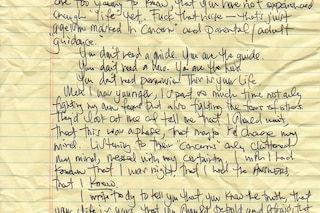 are too young to know, that you have not experienced
enough life yet. Fuck that noise — that's just
ageism masked in concern and parental/adult
guidance.
You don't need a guide. You are the guide.
You don't need a
You don't need permission This is your life
When I was younger, I spent so much time not only
fighting my own fears but also fighting the fears of others
they'd look at me and tell me that I
that this was a phase, that maybe I'd change my
mind. Listening to their concerns only cluttered
my mind, messed with my certainty. I wish I had
known that I was right that I had the answers
that I knew.
I write today to tell you that you know the truth, that
your life is yours, that